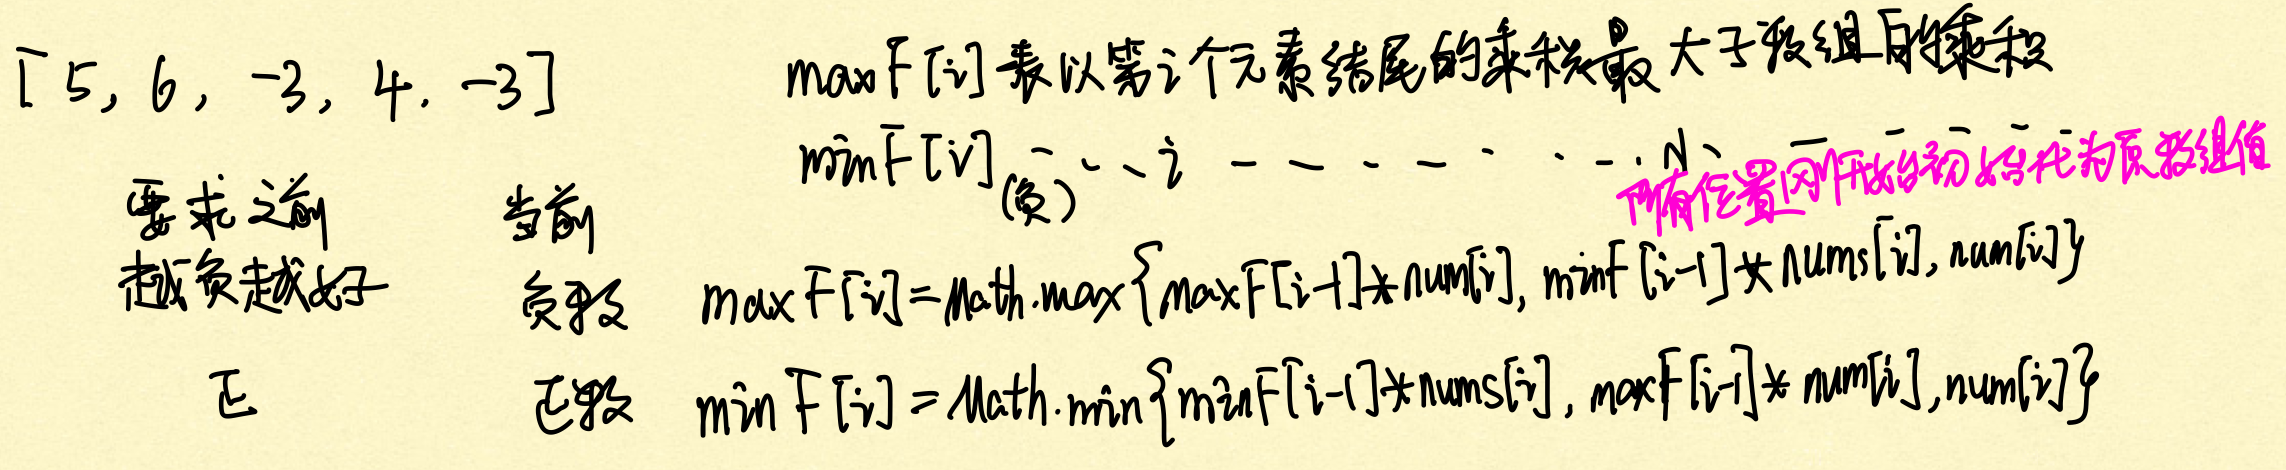 [5, 6, -3, 4, -3]
maxF[i]表以第i个元素结尾的乘积最大子数组的乘积
minF[i] - - - i - - - - - - - - 小 - - - - -
(负)
所有位置刚开始初始化为原数组值
要求之前 当前
越负越好 负数 maxF[i]=Math.max{maxF[i-1]*num[i], minF[i-1]*nums[i], num[i]}
正 正数 minF[i]=Math.min{minF[i-1]*nums[i], maxF[i-1]*num[i], num[i]}